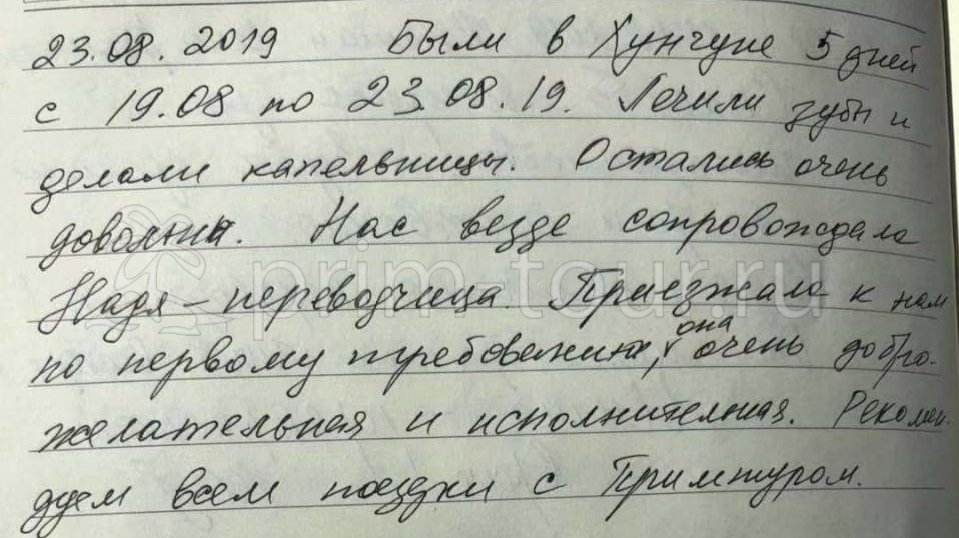 23.08.2019 Были в Хунчуне 5 дней
с 19.08 по 23.08.19. Лечили зубы и
делали капельницы. Остались очень
довольны. Нас везде сопровождала
Надя - переводчица. Приезжала к нам
по первому требованию, она очень добро-
желательная и исполнительная. Рекомен-
дуем всем поездки с Примтуром.
prim-tour.ru